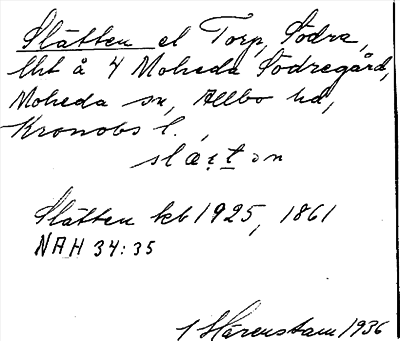 Slätten el Torp, Södra,
lht å 4 Moheda Södregård,
Moheda sn, Allbo hd,
Kronobs l.,
Slätten kb 1925, 1861
NAH 34:35
1 Härenstam 1936